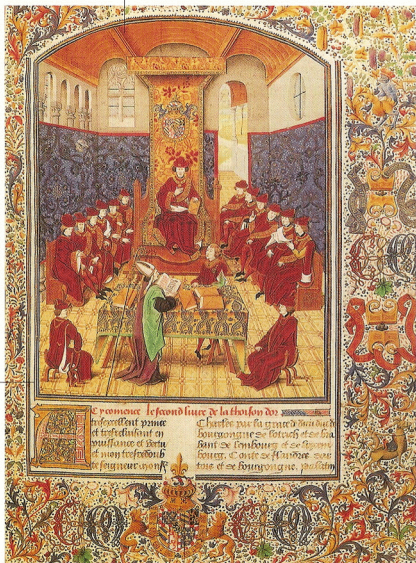 Cy comence le second liure de la thoison dor
tresexcellent prince
et en
puissance et vertu
et mon tresredoub
te seigneur
Charles par la grace de dieu duc de
bourgoingne de lotrich et de bra
bant de lembourg et de
bourg. Conte de flandres dar
tois et de bourgoingne. palatin